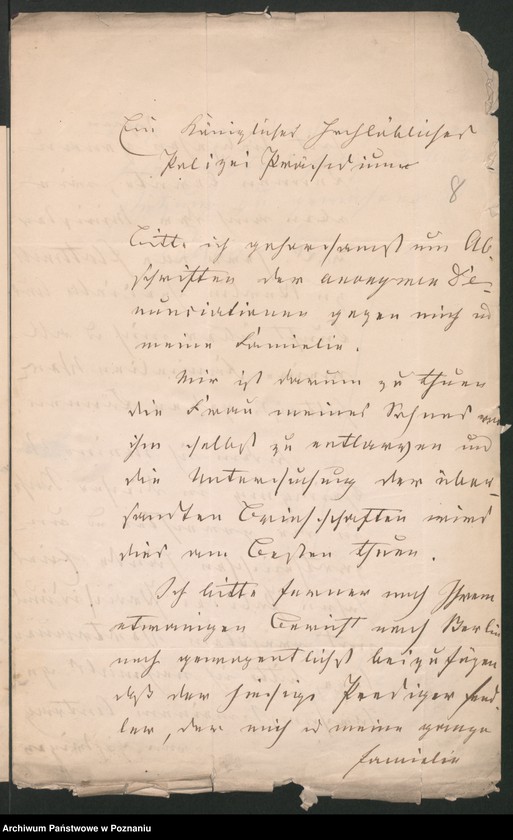 Ein Königliches Hochlöbliches
Polizei Präsidium
8
bitte ich gehorsamst um Ab-
schriften der anonymen De-
nunciationen gegen mich u
meine Familie.
Mir ist darum zu thuen
die Frau meines Sohnes
ihm selbst zu entlarven und
die Untersuchung der über-
sandten Briefschaften wird
dies am Besten thuen.
Ich bitte ferner nach Ihrem
etwanigen Bericht nach Berlin
noch gewogentlichst beizufügen
daß der hiesige Prediger
der mich u meine ganze
Familie
Archiwum Państwowe w Poznaniu